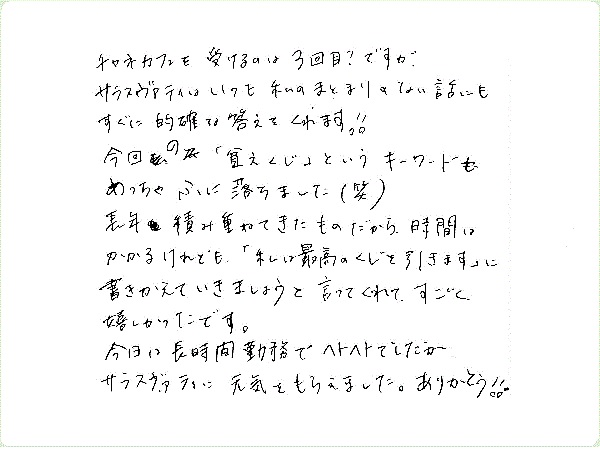 チャネカフェを 受けるのは 3回目?ですが
サラスヴァティは いつも 私のまとまりのない話にも
すぐに 的確な答えを くれます!!
今回の 「貧乏くじ」という キーワードも
めっちゃ ふに 落ちました(笑)
長年 積み重ねてきたものだから、時間は
かかるけれども、「私は最高のくじを引きます」に
書きかえていきましょうと 言ってくれて、すごく
嬉しかったです。
今日は 長時間勤務で ヘトヘトでしたが
サラスヴァティに 元気をもらえました。ありがとう!!